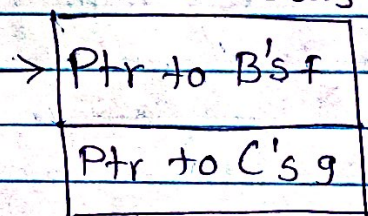 Ptr to B's f
Ptr to C's g